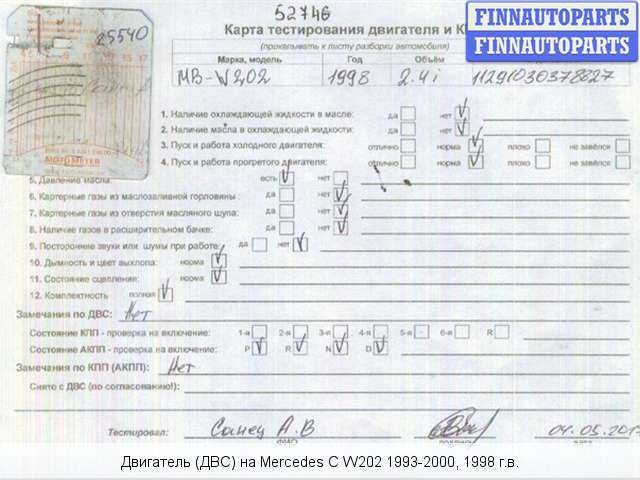 52746
25540
MOTOMETER
FINNAUTOPARTS
FINNAUTOPARTS
Карта тестирования двигателя и К
(прикалывать к листу разборки автомобиля)
Марка, модель Год Объём
MB-W202 1998 2.4i 11291030378827
1. Наличие охлаждающей жидкости в масле: да нет
2. Наличие масла в охлаждающей жидкости: да нет
3. Пуск и работа холодного двигателя: отлично норма плохо не завёлся
4. Пуск и работа прогретого двигателя: отлично норма плохо не завёлся
5. Давление масла: есть нет
6. Картерные газы из маслозаливной горловины: да нет
7. Картерные газы из отверстия масляного щупа: да нет
8. Наличие газов в расширительном бачке: да нет
9. Посторонние звуки или шумы при работе: да нет
10. Дымность и цвет выхлопа: норма
11. Состояние сцепления: норма
12. Комплектность полная
Замечания по ДВС: Нет
Состояние КПП - проверка на включение: 1-я 2-я 3-я 4-я 5-я 6-я R
Состояние АКПП - проверка на включение: P R N D
Замечания по КПП (АКПП): Нет
Снято с ДВС (по согласованию!):
Тестировал: Санец А.В 04.05.201
Двигатель (ДВС) на Mercedes C W202 1993-2000, 1998 г.в.